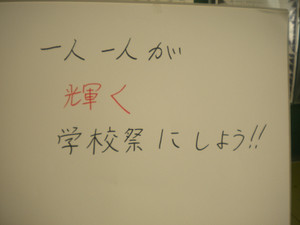 一人一人が
輝く
学校祭にしよう!!